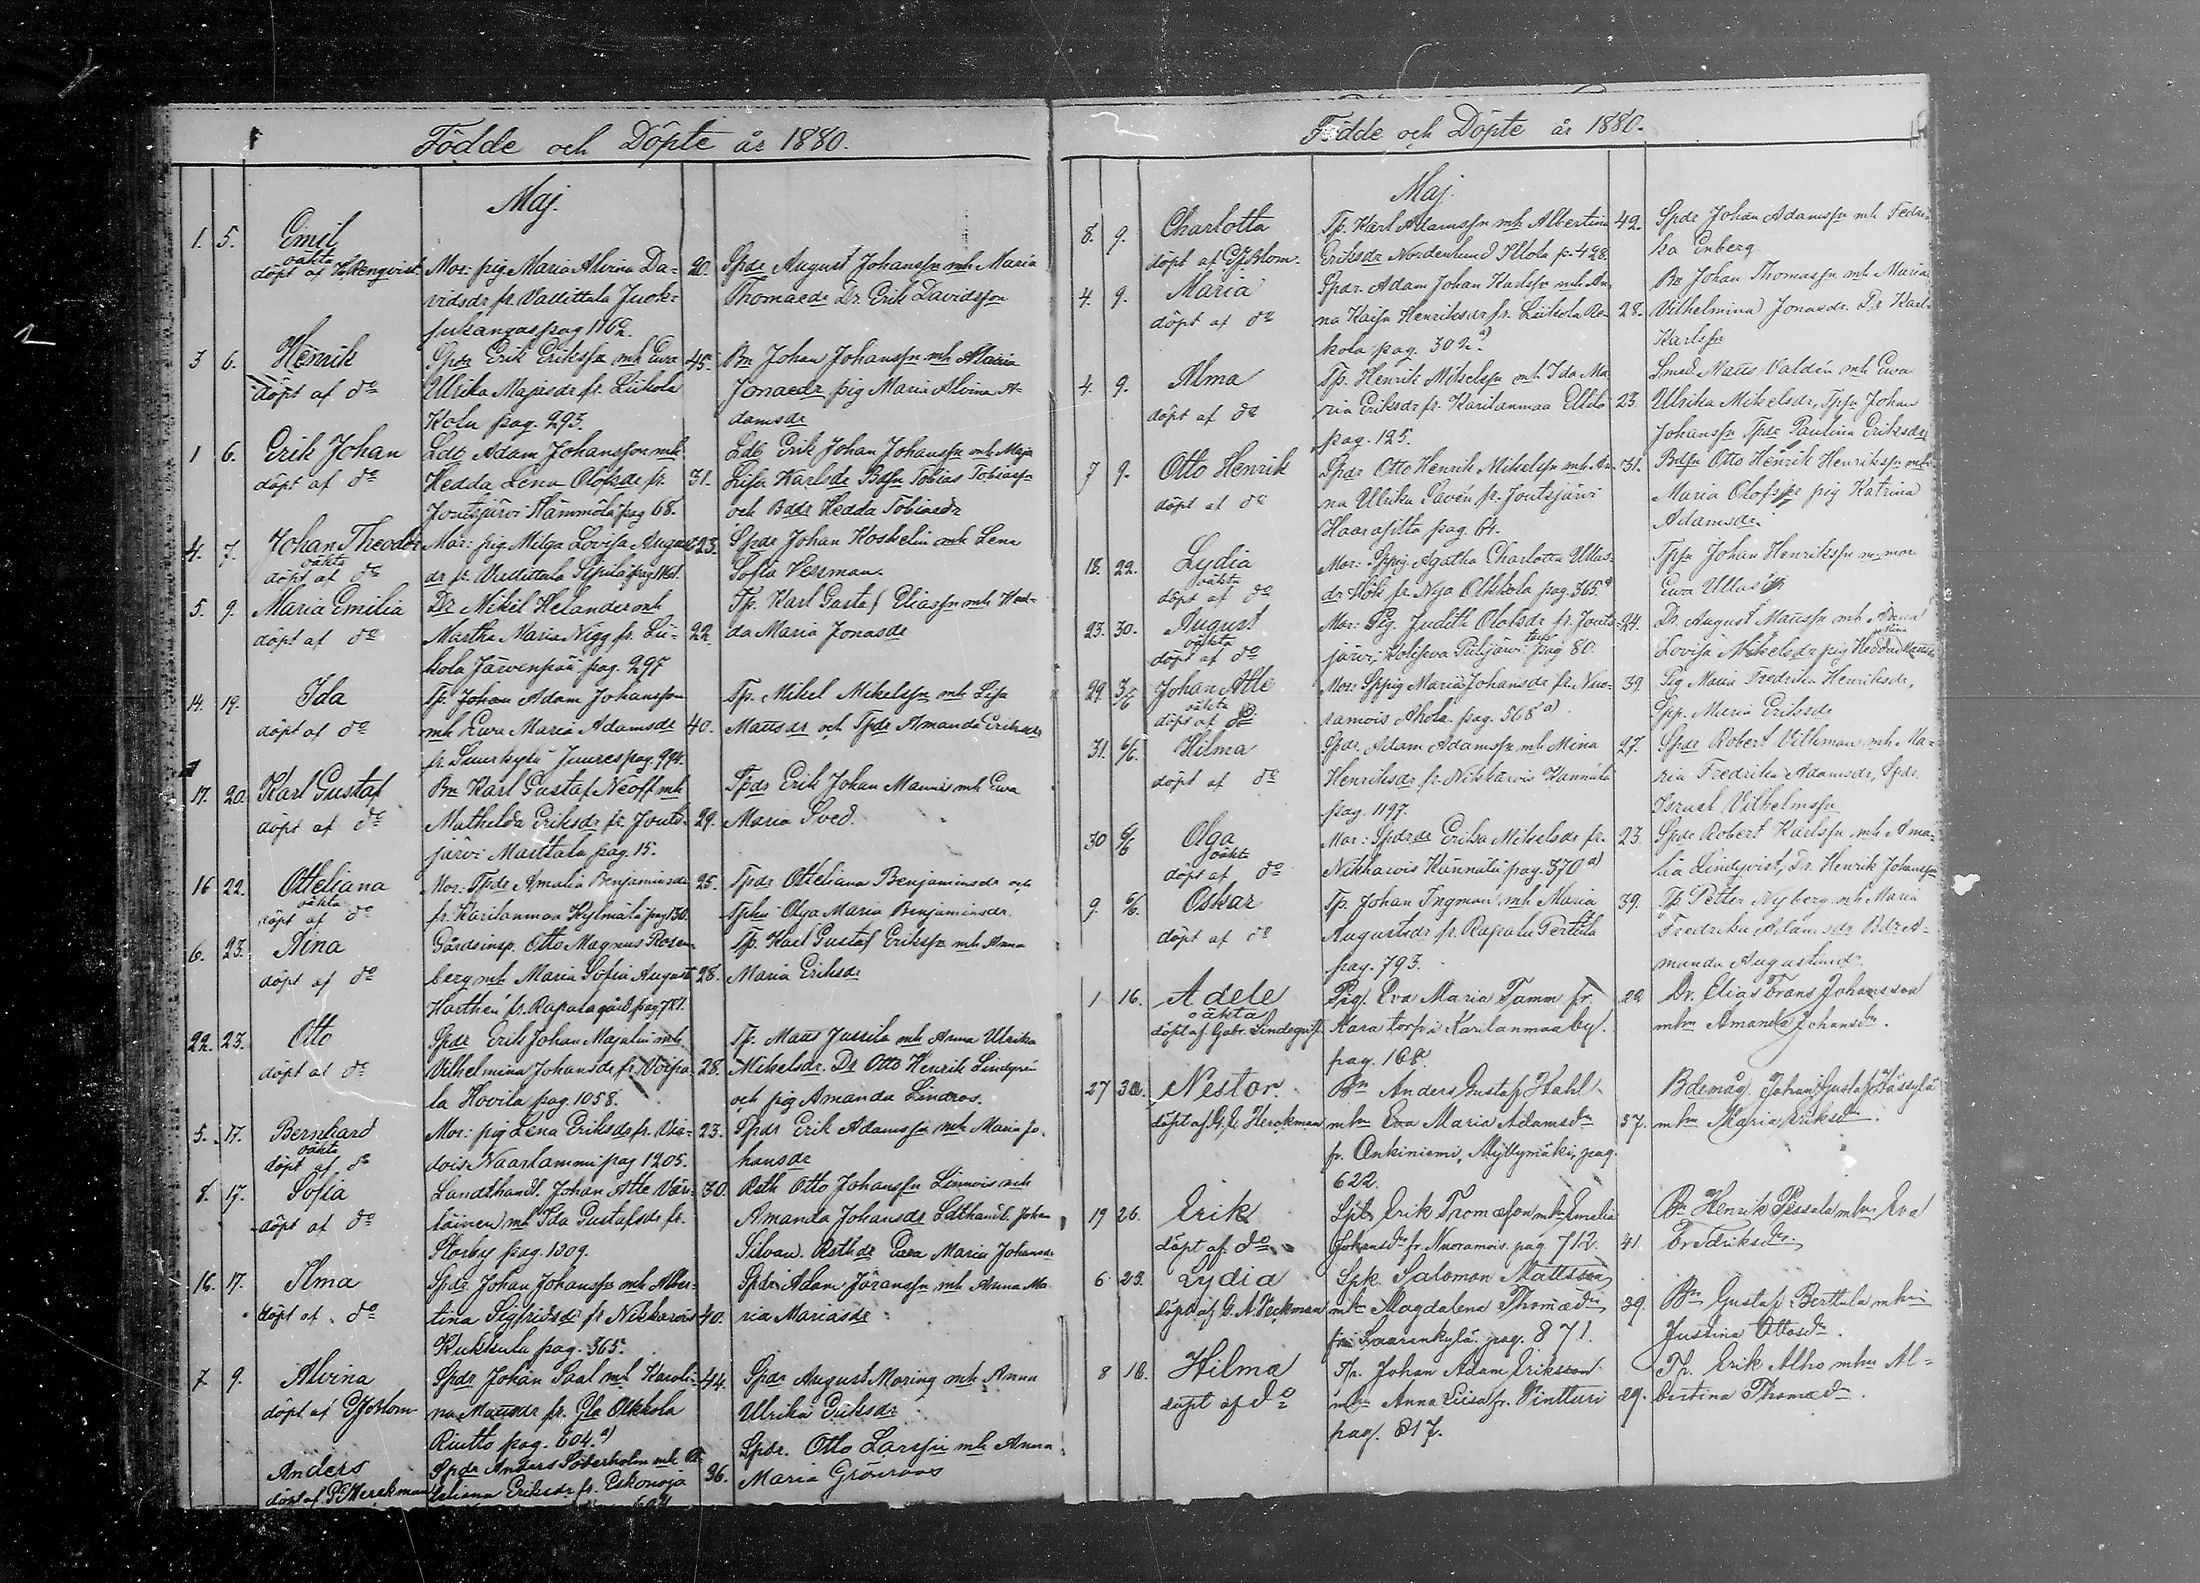 Födde och Döpte år 1880.
Maj.
1. 5. Emil
oäkta
döpt af
Mor: pig Maria Alvina Da-
vidsdr fr. Vallittula Juok-
pag 1162.
20. Spdr August Johansfn mh Maria
Thomaedr Dr Erik Davidsson
3 6. Henrik
döpt af do
Spdr Erik Eriksfn mh Ewa
Ulrika Majasdr fr. Liikola
Kola pag. 293.
45. Bn Johan Johansfn mh Maria
Jonaedr pig Maria Alvina A-
damsdr
1 6. Erik Johan
döpt af do
Ldb Adam Johansson mh
Hedda Lena Olofsdr fr.
Joutsjärvi Hämmölä pag 68.
31. Ldb Erik Johan Johansfn mh Maja
Lisa Karlsdr Bdfn Tobias Tobiasfn
och Bddr Hedda Tobiaedr
4. 7. Johan Theodor
oäkta
döpt af do
Mor: pig Milga Lovisa August
dr fr. Vallittula Seppälä pag 1161.
23. Spdr Johan Koskelin mh Lena
Sofia Vessman.
5. 9. Maria Emilia
döpt af do
Dr Mikel Helander mh
Martha Maria Nigg fr. Lii-
kola Järvenpää pag. 297
22. Tp. Karl Gustaf Eliasfn mh Hed-
da Maria Jonasdr
14. 19. Ida
döpt af do
Tp. Johan Adam Johansson
mh Ewa Maria Adamsdr
fr. Suurkylä Juures pag. 994.
40. Tp. Mikel Mikelsfn mh Lisa
Mattsdr och Tpdr Amanda Eriksdr
17. 20. Karl Gustaf
döpt af do
Bn Karl Gustaf Neoff mh
Mathelda Eriksdr fr. Jouts-
järvi Marttala pag. 15.
29. Tpdr Erik Johan Mannis mh Ewa
Maria Sved.
16 22. Otteliana
oäkta
döpt af do
Mor: Tpdr Amalia Benjaminsdr
fr. Karilanmaa Kylmälä pag 130.
25. Tpdr Otteliana Benjaminsdr och
Olga Maria Benjaminsdr.
6. 23. Aina
döpt af do
Gårdsinsp. Otto Magnus Rosen-
berg mh Maria Sofia August
Harthén fr. Rapala gård pag 721.
28. Tp. Karl Gustaf Eriksfn mh Anna
Maria Eriksdr
22. 23. Otto
döpt af do
Spdr Erik Johan Majalin mh
Vilhelmina Johansdr fr. Voipa-
la Hovila pag. 1058.
28. Tp. Matts Jussila mh Anna Ulrika
Mikelsdr. Dr Otto Henrik Lindgrén
och pig Amanda Lindros.
5. 17. Bernhard
oäkta
döpt af do
Mor: pig Lena Eriksdr fr. Via-
dois Naarlammi pag 1205.
23. Spdr Erik Adamsfn mh Maria Jo-
hansdr
8. 17. Sofia
döpt af do
Landthandl. Johan Atle Vär-
täinen mh Ida Gustafsdr fr.
Storby pag. 1309.
30. Rsth Otto Johansfn Linnois mh
Amanda Johansdr Lathandl. Johan
Silvan. Rsthdr Ewa Maria Johansdr
16. 17. Ilma
döpt af do
Spdr Johan Johansfn mh Alber-
tina Sigfridsdr fr. Nikkarois
Kukkula pag. 365.
40. Spdr Adam Göransfn mh Anna Ma-
ria Mariasdr
7 9. Alvina
döpt af Ejoblom
Spdr Johan Saal mh Karoli-
na Mattsdr fr. Gla Olkkola
Riutto pag. 604.a)
44. Spdr August Moring mh Anna
Ulrika Eriksdr
Anders
döpt af Herckman
Spdr Anders Söderholm mh Ot-
teliana Eriksdr fr. Eskonoja
36. Spdr. Otto Larsfn mh Anna
Maria Grönroos
Födde och Döpte år 1880.
Maj.
8. 9. Charlotta
döpt af
Tp. Karl Adamssfn mh Albertina
Eriksdr Nordenlund Illola p. 428.
42. Spdr Johan Adamsfn mh Fedri-
ka Enberg
4. 9. Maria
döpt af do
Spdr. Adam Johan Karlsfn mh An-
na Kaisa Henriksdr fr. Liikola Ro-
kola pag. 302.a)
28. Bn Johan Thomasfn mh Maria
Vilhelmina Jonaedr. Dr Karl
Karlsfn
4. 9. Alma
döpt af do
Tp. Henrik Mikelsfn mh Ida Ma-
ria Eriksdr fr. Karilanmaa Ullilä
pag. 125.
23. Smed Matts Valdén mh Ewa
Ulrika Mikelsdr, Tpfn Johan
Johansfn Spdr Paulina Eriksdr
7 9. Otto Henrik
döpt af do
Spdr Otto Henrik Mikelsfn mh An-
na Ulrika Savén fr. Joutsjärvi
Haarasilta pag. 64.
31. Bdfn Otto Henrik Henriksfn mh
Maria Olofsdr pig Katrina
Adamsdr.
18. 22. Lydia
oäkta
döpt af do
Mor: Sppig Agatha Charlotta Ullas-
dr Hök fr. Nya Olkkola pag. 365.a)
Tpfn Johan Henriksfn m. mor
Ewa Ullasdr
23. 30. August
oäkta
döpt af do
Mor: Pig Judith Olofsdr fr. Jouts-
järvi, Kolsjeva Pulsjärvi torp pag 80.
24. Dr. August Mattsfn mh Anna
Lovisa Mikelsdr pig Hedda
29. 3/6 Johan Atle
oäkta
döpt af do
Mor: Sppig Maria Johansdr fr. Nuo-
ramois Ahola pag. 568 a)
39. Pig Maria Fredrika Henriksdr,
Spp. Maria Eriksdr
31. 6/6. Hilma
döpt af do
Spdr. Adam Adamsfn mh Mina
Henriksdr fr. Nikkarois Hannula
pag. 1197.
27. Spdr Robert Vilkman mh Ma-
ria Fredrika Adamsdr, Spdr.
Israel Vilhelmsfn
30 6/6 Olga
oäkta
döpt af do
Mor: Spdrdr Erika Mikelsdr fr.
Nikkarois Hännälä pag. 370 a)
23. Spdr Robert Karlsfn mh Ama-
lia Lindqvist, Dr. Henrik Johansfn
9. 6/6. Oskar
döpt af do
Tp. Johan Ingman mh Maria
Augustsdr fr. Rapala Perttila
pag. 793.
39. Tp Petter Nyberg mh Maria
Fredrika Adamsdr Bdr A-
manda Augustsdr.
1 16. Adele
oäkta
döpt af Gabr. Lindeqvist
Pig. Eva Maria Tamm fr.
Kara torp i Karilanmaa by.
pag. 168.
22 Dr. Elias Frans Johansson
mhu Amanda Johansdr.
27 30. Nestor.
döpt af G. A. Herckman
Bn Anders Gustaf Hahl
mhu Eva Maria Adamsdr
fr. Onkiniemi, Myllymäki, pag.
622.
37. Bdemåg Johan Gustaf Hässylä
mhu Maria Eriksdr.
19 26. Erik
döpt af do
Spb. Erik Thomasson mhu Emalia
Johansdr fr. Nuoramois. pag. 712.
41. Bn Henrik Pessala mhu Eva
Fredriksdr.
6 23. Lydia
döpt af G. A. Heckman
Spk. Salomon Mattsson
mhu Magdalena Thomaedr
fr. Saarenkylä. pag. 871.
39. Bn Gustaf Berttula mhu
Justina Ottosdr.
8 16. Hilma
döpt af do
Tp. Johan Adam Eriksson
mhu Anna Liisa fr. Vintturi
pag. 817.
29. Tp. Erik Alho mhu Al-
bertina Thomaedr.